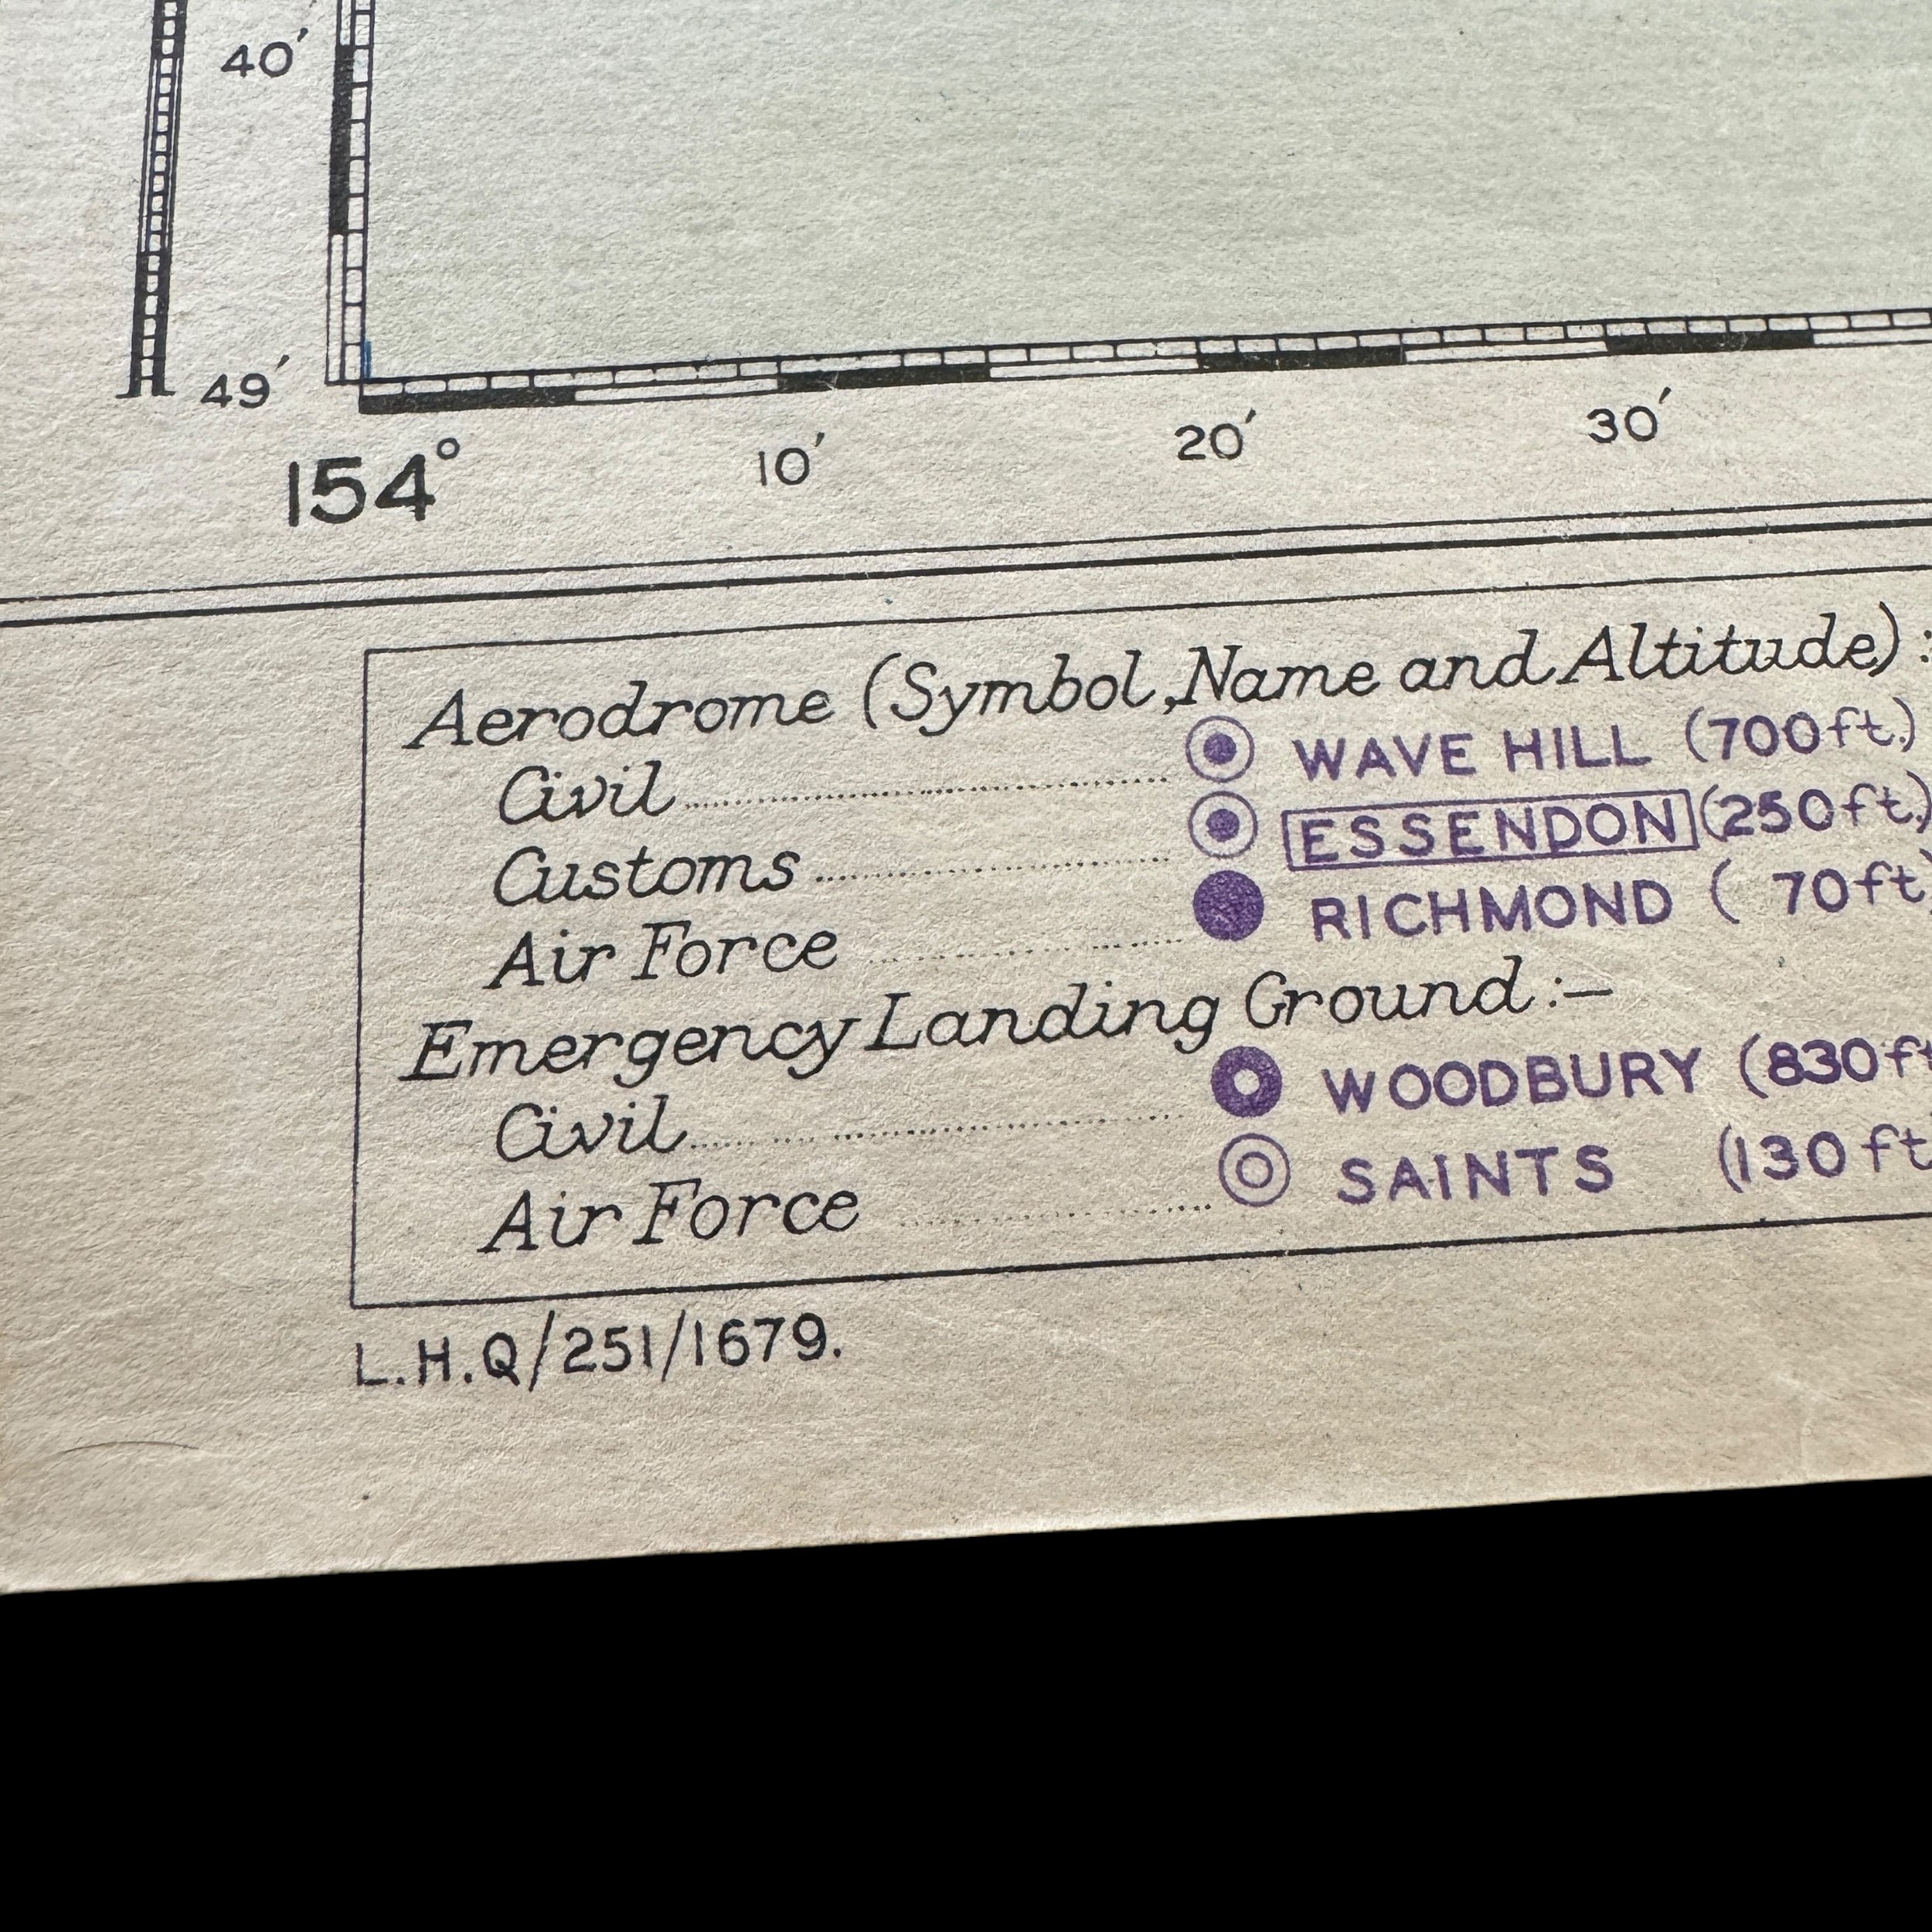 40′
49′
154° 10′ 20′ 30′
Aerodrome (Symbol, Name and Altitude) :
Civil WAVE HILL (700ft.)
Customs ESSENDON (250ft.)
Air Force RICHMOND ( 70ft
Emergency Landing Ground :—
Civil WOODBURY (830ft
Air Force SAINTS (130ft
L.H.Q/251/1679.